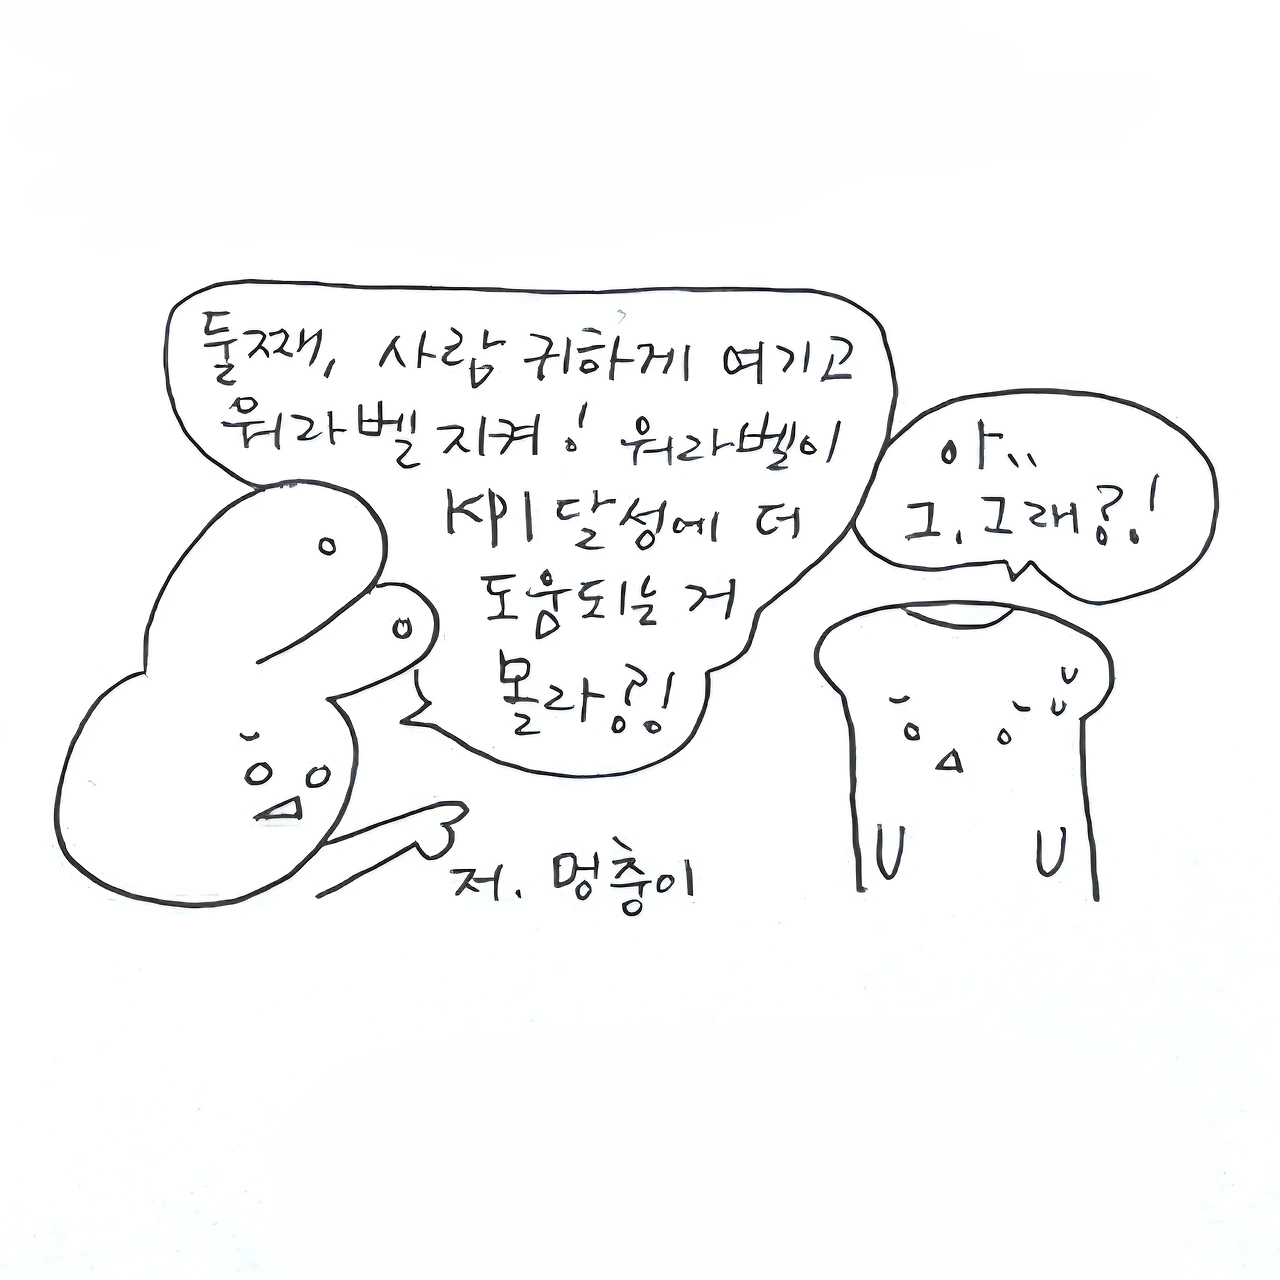 둘째, 사람 귀하게 여기고
워라벨 지켜! 워라벨이
KPI 달성에 더
도움되는 거
몰라?!
아..
그, 그래?!
저. 멍충이